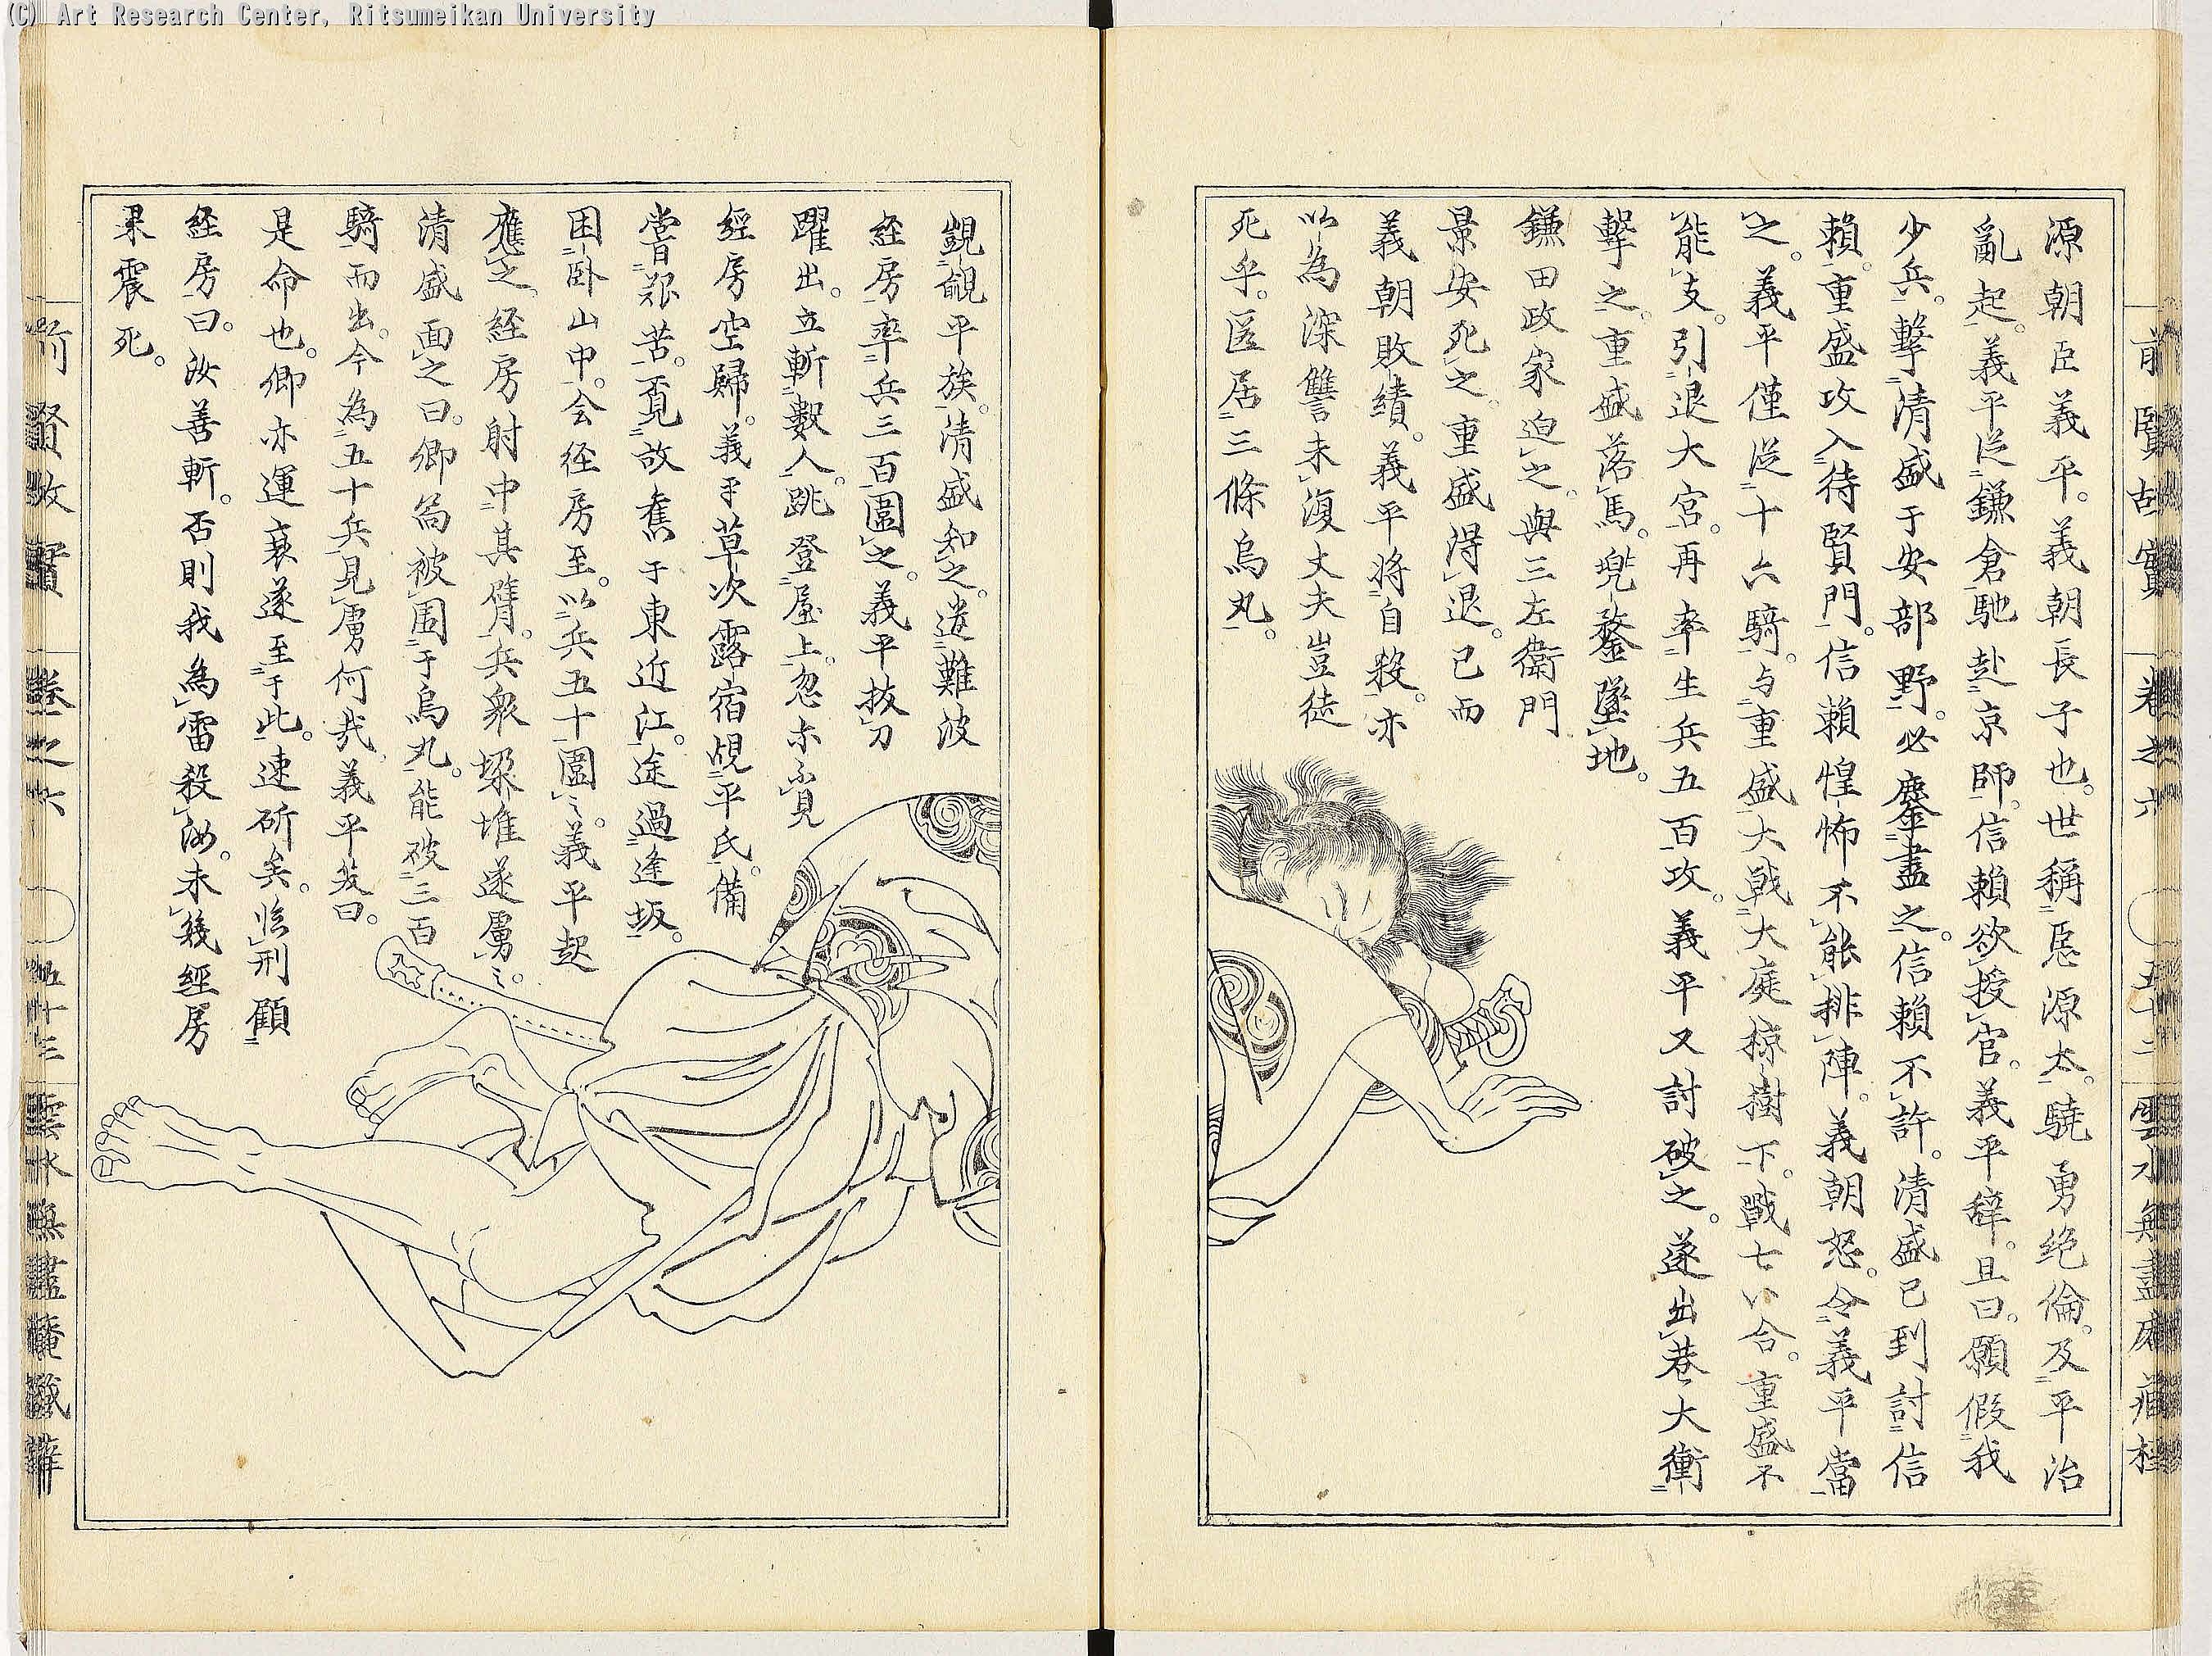 (C) Art Research Center, Ritsumeikan University
前賢故實 卷之六 五十二 雲水無盡庵藏
源朝臣義平。義朝長子也。世稱惡源太。驍勇絶倫。及平治
亂起。義平從鎌倉馳赴京師。信賴欲授官。義平辭。且曰。願假我
少兵。擊清盛于安部野。必鏖盡之。信賴不許。清盛已到討信
賴。重盛攻入待賢門。信賴惶怖不能排陣。義朝怒。令義平當
之。義平僅從十六騎。与重盛大戰大庭椋樹下。戰七八合。重盛不
能支。引退大宮。再率生兵五百攻。義平又討破之。遂出巷大衝
擊之。重盛落馬。兜鍪墜地。
鎌田政家迫之。與三左衛門
景安死之。重盛得退。已而
義朝敗績。義平將自殺。亦
以為深讐未復丈夫豈徒
死乎。匿居三條烏丸。
覬覦平族。清盛知之。遣難波
経房率兵三百圍之。義平抜刀
躍出。立斬數人。跳登屋上。忽亦不見
經房空歸。義平草次露宿覘平氏。備
嘗艱苦。覓故舊于東近江。途過逢坂。
困卧山中。会経房至。以兵五十圍之。義平起
應之。経房射中其臂。兵衆堆遂虜之。
清盛面之曰。卿為被囲于烏丸。能破三百
騎而出。今為五十兵見虜何哉。義平笑曰。
是命也。卿亦運衰遂至于此。速斫矣。臨刑顧
経房曰。汝善斬。否則我為雷殺汝。未幾經房
果震死。
前賢故實 卷之六 五十三 雲水無盡庵藏